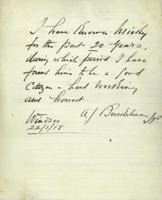 I have known
for the past 20 years,
during which period I have
found him to be a good
Citizen - hard working
and honest.
Windsor
22/1/18